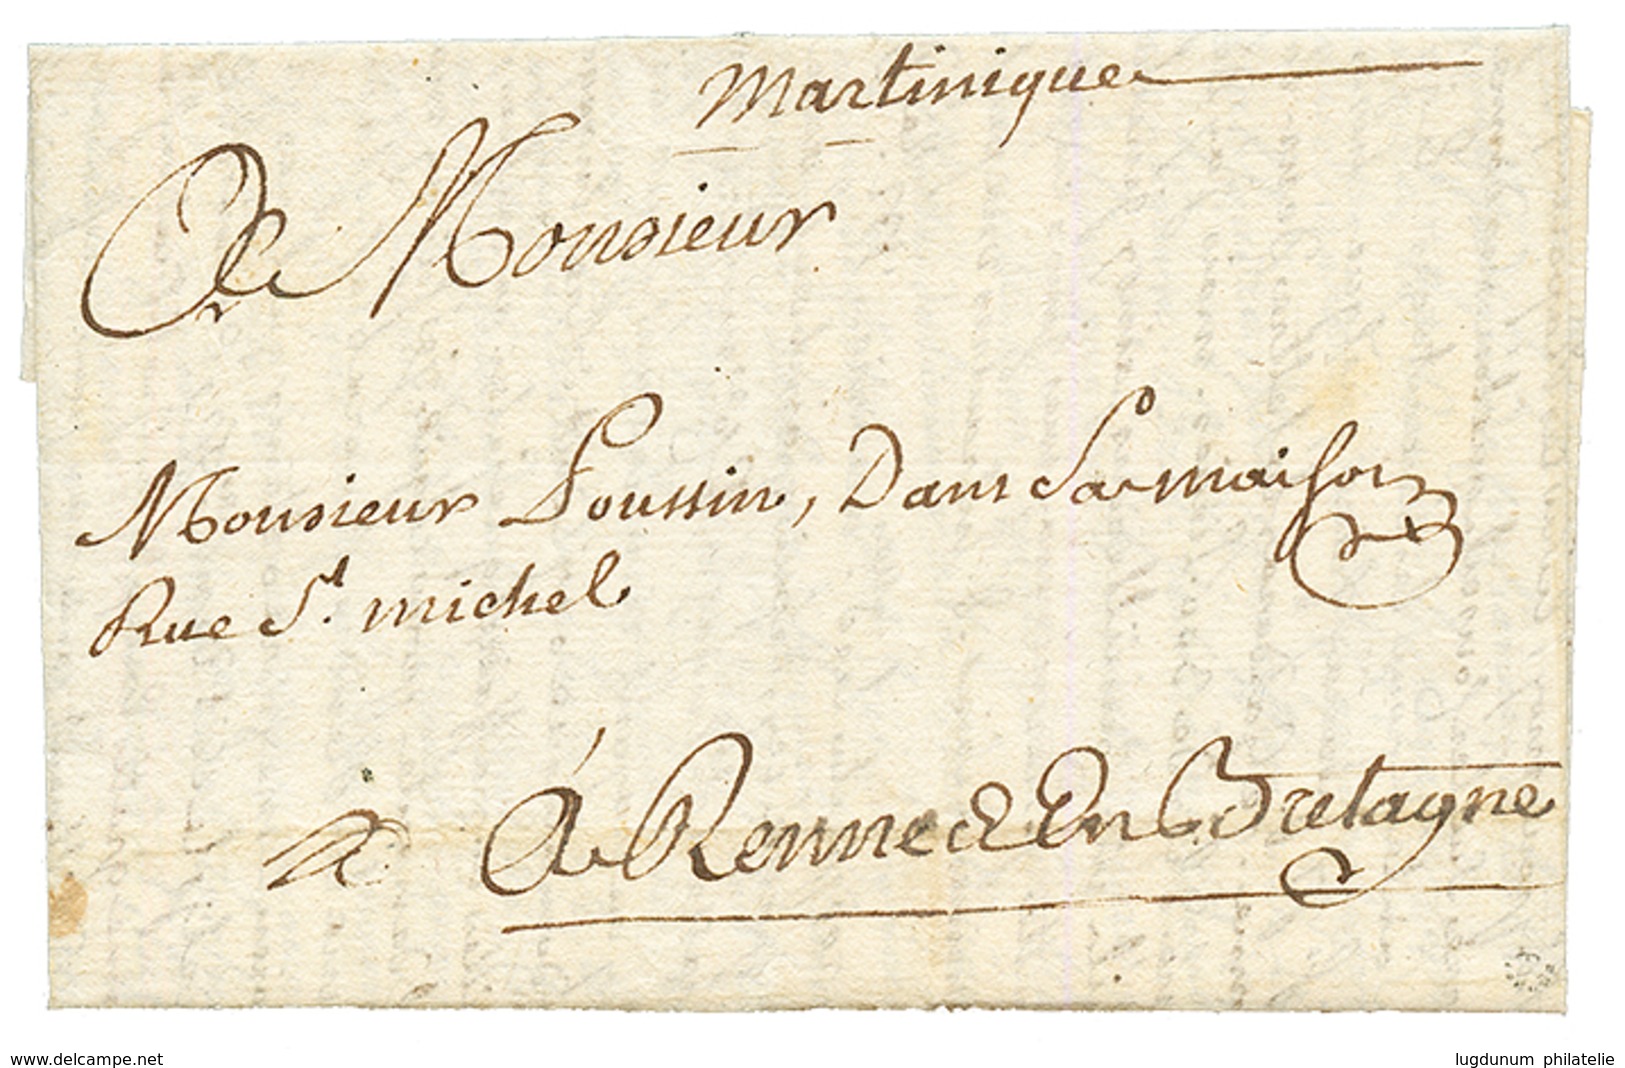 Martinique
A Monsieur
Monsieur Poussin, Dans Sa maison
Rue St. michel
A
À Rennes En Bretagne
www.delcampe.net
lugdunum philatelie